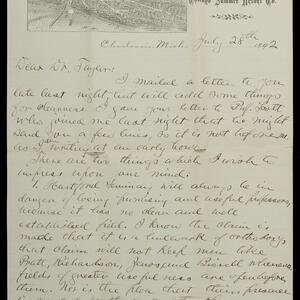 Chicago Summer Resort Co.
Charlevoix Mich. July 28th 1892
Dear Dr. Taylor:
I mailed a letter to you
late last night, but will add some things
for clearness. I gave your letter to Prof. Scott
who joined me last night that he might
send on a few lines, so it is not before me
as I am writing at an early hour.
There are two things which I wish to
impress upon your mind:
1. Hartford Seminary will always be in
danger of losing promising and useful professors,
because it has no clear and well
established field. I know the claim is
made that it is a bulwark of orthodoxy
that claim will not keep men like
Pratt, Richardson, and Bissell whenever
fields of greater usefulness are open before
them. Nor is the plea that their presence